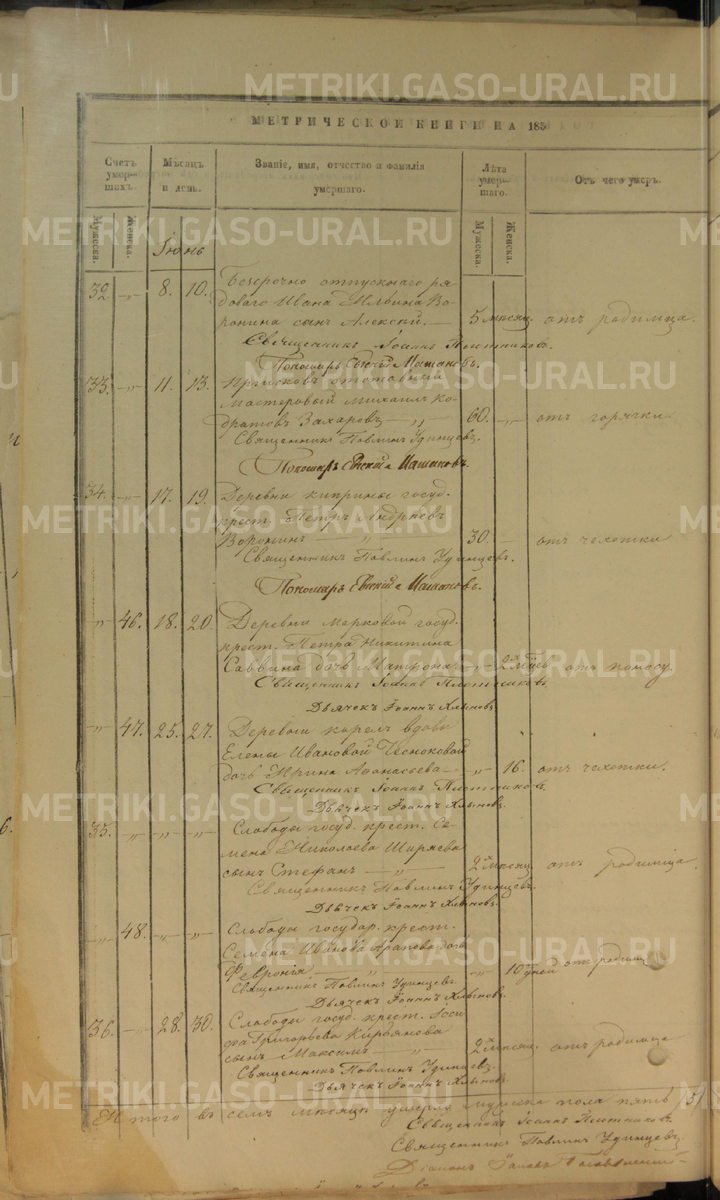 METRIKI.GASO-URAL.RU
МЕТРИЧЕСКОЙ КНИГИ НА 185
Счетъ умершихъ.
Мѣсяцъ и день.
Званіе, имя, отчество и фамилія умершаго.
Лѣта умершаго.
Отъ чего умеръ.
Мужеска. Женска.
Мужеска. Женска.
Іюнь
32. „ 8. 10. Безсрочно отпускнаго ря-
доваго Ивана Ильина Во-
ронина сынъ Алексѣй. 5 мѣсяц. отъ родимца.
Священникъ Іоаннъ Плотниковъ.
Пономарь Машановъ.
33. „ 11. 13. отставный
мастеровый Михаилъ Ко-
дратовъ Захаровъ „ 60. „ отъ горячки
Священникъ Павлинъ Удинцевъ.
Пономарь Машановъ.
34. „ 17. 19. Деревни Киприны госуд.
крест. Петръ Андреевъ
Воронинъ „ 30. отъ чехотки
Священникъ Павлинъ Удинцевъ.
Пономарь Машановъ.
„ 46. 18. 20. Деревни Мерковой госуд.
крест. Петра Никитина
Саввина дочь Матрона „ 2 отъ поносу
Священникъ Іоаннъ Плотниковъ.
Дьячекъ Іоаннъ Хлыновъ.
„ 47. 25. 27. Деревни Корелъ вдовы
Елены Ивановой Чесноковой
дочь Ирина Афонасьева „ 16. отъ чехотки.
Священникъ Іоаннъ Плотниковъ.
Дьячекъ Іоаннъ Хлыновъ.
35. „ „ „ Слободы госуд. крест. Се-
мена Николаева Ширяева
сынъ Стефанъ „ 2 мѣсяц. отъ родимца.
Священникъ Павлинъ Удинцевъ.
Дьячекъ Іоаннъ Хлыновъ.
„ 48. „ „ Слободы государ. крест.
Семена Иванова Арапова дочь
Февронія „ „ 10 дней отъ родим
Священникъ Павлинъ Удинцевъ.
Дьячекъ Іоаннъ Хлыновъ.
36. „ 28. 30. Слободы госуд. крест. Іоси-
фа Григорьева Кирьянова
сынъ Максимъ „ 2 мѣсяц. отъ родимца
Священникъ Павлинъ Удинцевъ.
Дьячекъ Іоаннъ Хлыновъ.
Итого въ семъ мѣсяцѣ умерло мужеска пола пять /5/
Священникъ Іоаннъ Плотниковъ.
Священникъ Павлинъ Удинцевъ.
Діаконъ